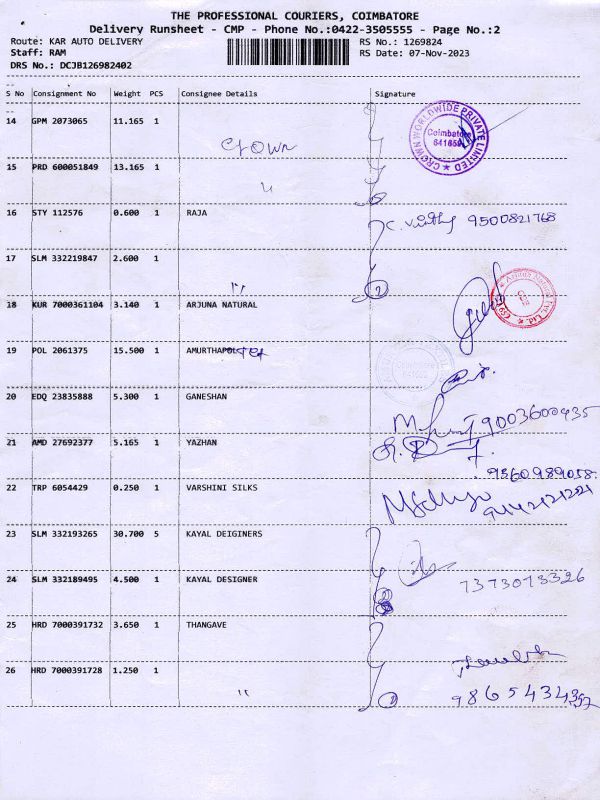 THE PROFESSIONAL COURIERS, COIMBATORE
Delivery Runsheet - CMP - Phone No.:0422-3505555 - Page No.:2
Route: KAR AUTO DELIVERY RS No.: 1269824
Staff: RAM RS Date: 07-Nov-2023
DRS No.: DCJB126982402
S No Consignment No Weight PCS Consignee Details Signature
14 GPM 2073065 11.165 1
Crown
CROWN WORLDWIDE PRIVATE LIMITED
Coimbatore
641659
15 PRD 600051849 13.165 1
"
16 STY 112576 0.600 1 RAJA
9500821768
17 SLM 332219847 2.600 1
"
18 KUR 7000361104 3.140 1 ARJUNA NATURAL
19 POL 2061375 15.500 1
20 EDQ 23835888 5.300 1 GANESHAN
9003600435
21 AMD 27692377 5.165 1 YAZHAN
9360989058
22 TRP 6054429 0.250 1 VARSHINI SILKS
23 SLM 332193265 30.700 5 KAYAL DEIGINERS
24 SLM 332189495 4.500 1 KAYAL DESIGNER
7373073326
25 HRD 7000391732 3.650 1 THANGAVE
26 HRD 7000391728 1.250 1
"